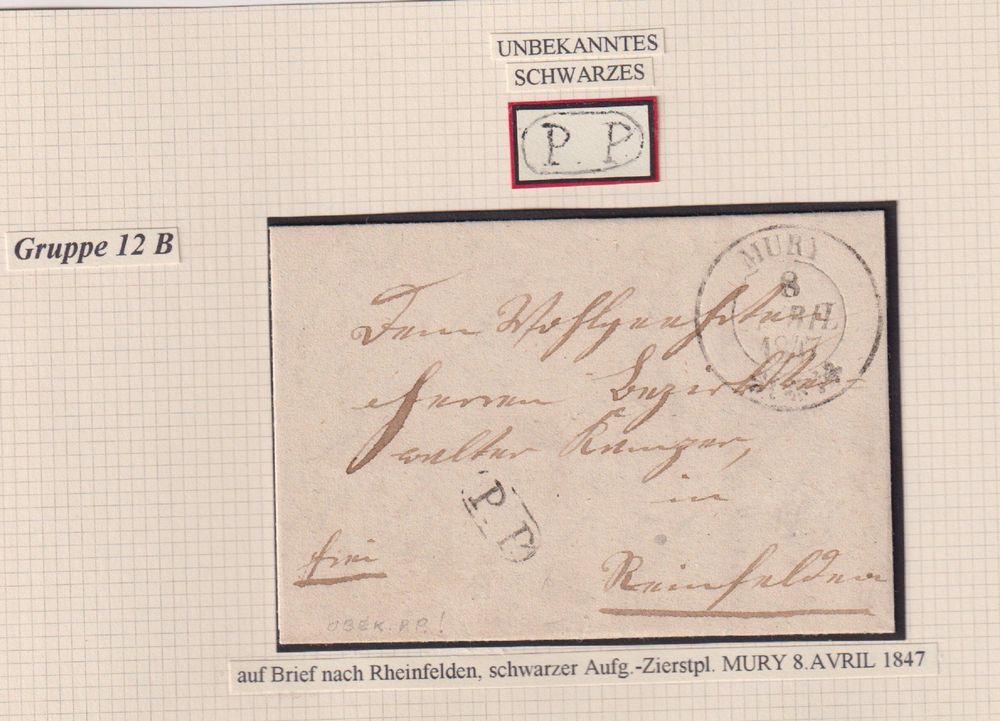 UNBEKANNTES
SCHWARZES
P. P.
Gruppe 12 B
MURY
8
AVRIL
1847
Dem Wohlgeehrten
Herren Bezirksver-
walter
in
Reinfelden
P. P.
frei
UBEK. P.P.!
auf Brief nach Rheinfelden, schwarzer Aufg.-Zierstpl. MURY 8.AVRIL 1847